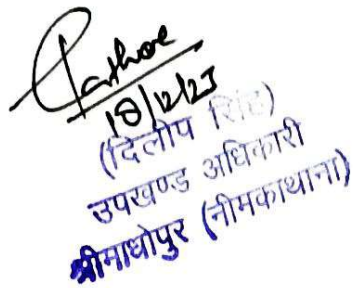 18/12/23
(दिलीप सिंह)
उपखण्ड अधिकारी
श्रीमाधोपुर (नीमकाथाना)